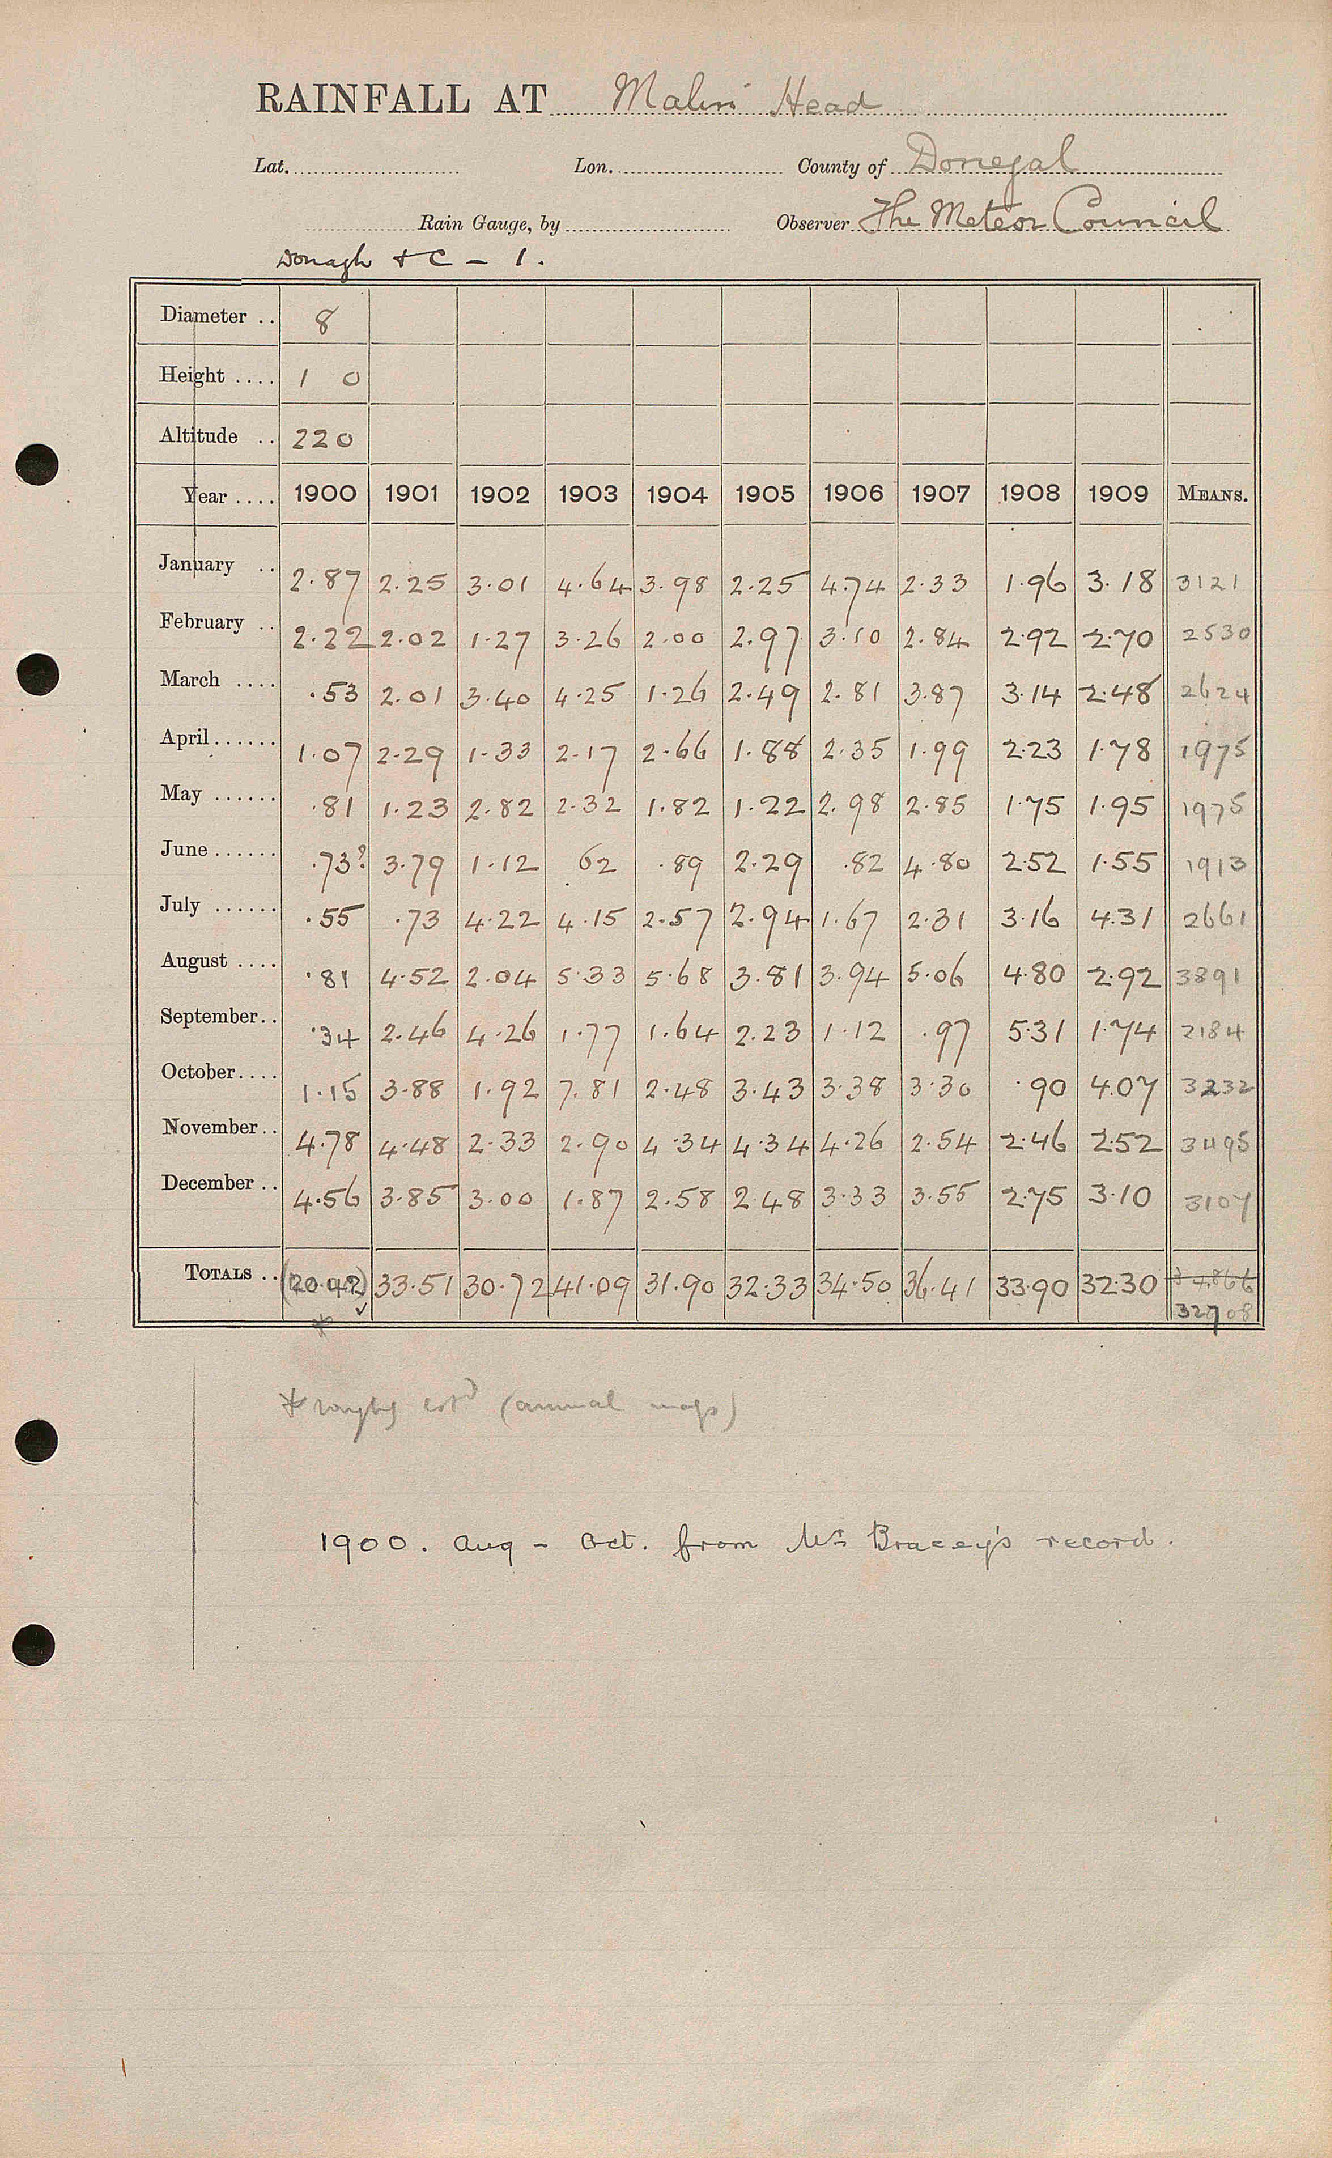 RAINFALL AT Malin Head
Lat. Lon. County of Donegal
Rain Gauge, by Observer The Meteor Council
Donagh & C - 1.
Diameter .. 8
Height .... 1 0
Altitude .. 220
Year .... 1900 1901 1902 1903 1904 1905 1906 1907 1908 1909 MEANS.
January .. 2.87 2.25 3.01 4.64 3.98 2.25 4.74 2.33 1.96 3.18 3121
February .. 2.22 2.02 1.27 3.26 2.00 2.97 3.10 2.84 2.92 2.70 2530
March .... .53 2.01 3.40 4.25 1.26 2.49 2.81 3.87 3.14 2.48 2624
April...... 1.07 2.29 1.33 2.17 2.66 1.88 2.35 1.99 2.23 1.78 1975
May ...... .81 1.23 2.82 2.32 1.82 1.22 2.98 2.85 1.75 1.95 1975
June ...... .73? 3.79 1.12 62 .89 2.29 .82 4.80 2.52 1.55 1913
July ...... .55 .73 4.22 4.15 2.57 2.94 1.67 2.31 3.16 4.31 2661
August .... .81 4.52 2.04 5.33 5.68 3.81 3.94 5.06 4.80 2.92 3891
September.. .34 2.46 4.26 1.77 1.64 2.23 1.12 .97 5.31 1.74 2184
October.... 1.15 3.88 1.92 7.81 2.48 3.43 3.38 3.30 .90 4.07 3232
November.. 4.78 4.48 2.33 2.90 4.34 4.34 4.26 2.54 2.46 2.52 3495
December .. 4.56 3.85 3.00 1.87 2.58 2.48 3.33 3.55 2.75 3.10 3107
TOTALS .. (20.42) 33.51 30.72 41.09 31.90 32.33 34.50 36.41 33.90 32.30
* 32708
* (annual maps)
1900. Aug - Oct. from Mr Bracey's record.